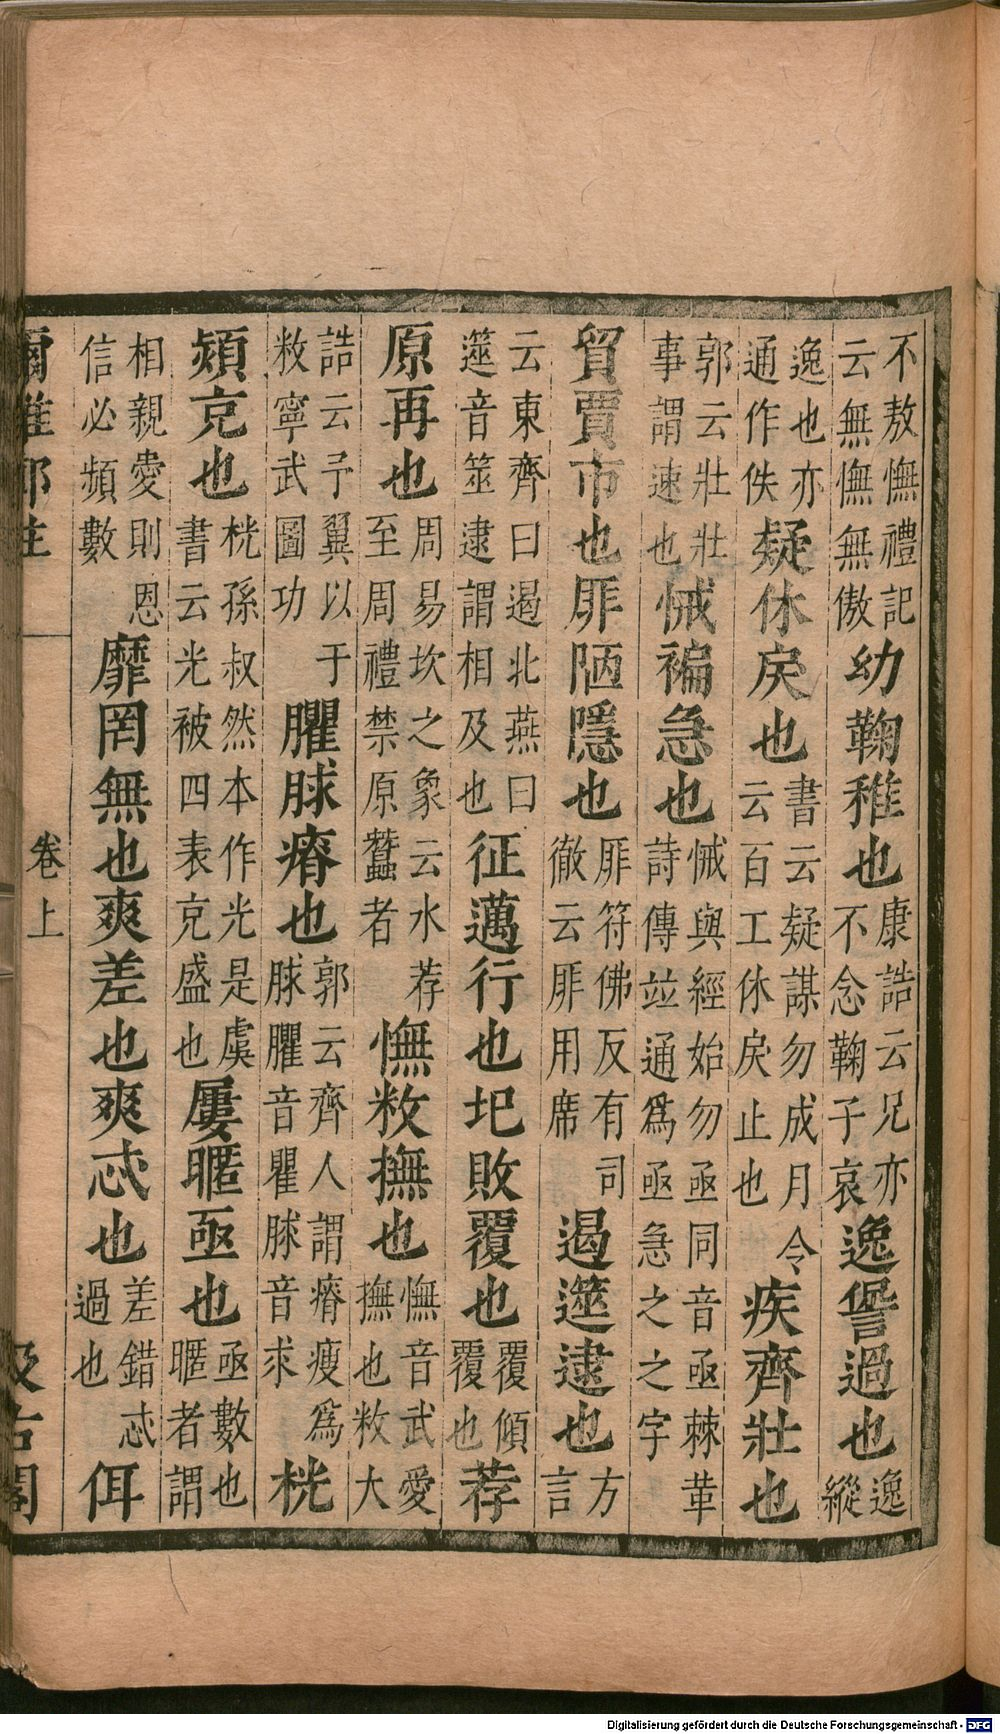 不敖憮禮記云無憮無傲幼鞠稚也康誥云兄亦不念鞠子哀逸諐過也逸縱
逸也亦通作佚疑休戾也書云疑謀勿成月令云百工休戾止也疾齊壯也
郭云壯壯事謂速也悈褊急也悈與經始勿亟同音亟棘革詩傳並通爲亟急之之字
貿賈市也厞陋隱也厞符佛反有司徹云厞用席遏遾逮也方言
云東齊曰遏北燕曰遾音筮逮謂相及也征邁行也圯敗覆也覆傾覆也荐
原再也周易坎之象云水荐至周禮禁原蠶者憮敉撫也憮音武愛撫也敉大
誥云予翼以于敉寧武圖功臞脙瘠也郭云齊人謂瘠瘦爲脙臞音瞿脙音求桄
熲充也桄孫叔然本作光是虞書云光被四表充盛也屢暱亟也亟數也暱者謂
相親愛則恩信必頻數靡罔無也爽差也爽忒也差錯忒過也佴
爾雅鄭注 卷上 汲古閣
Digitalisierung gefördert durch die Deutsche Forschungsgemeinschaft - DFG